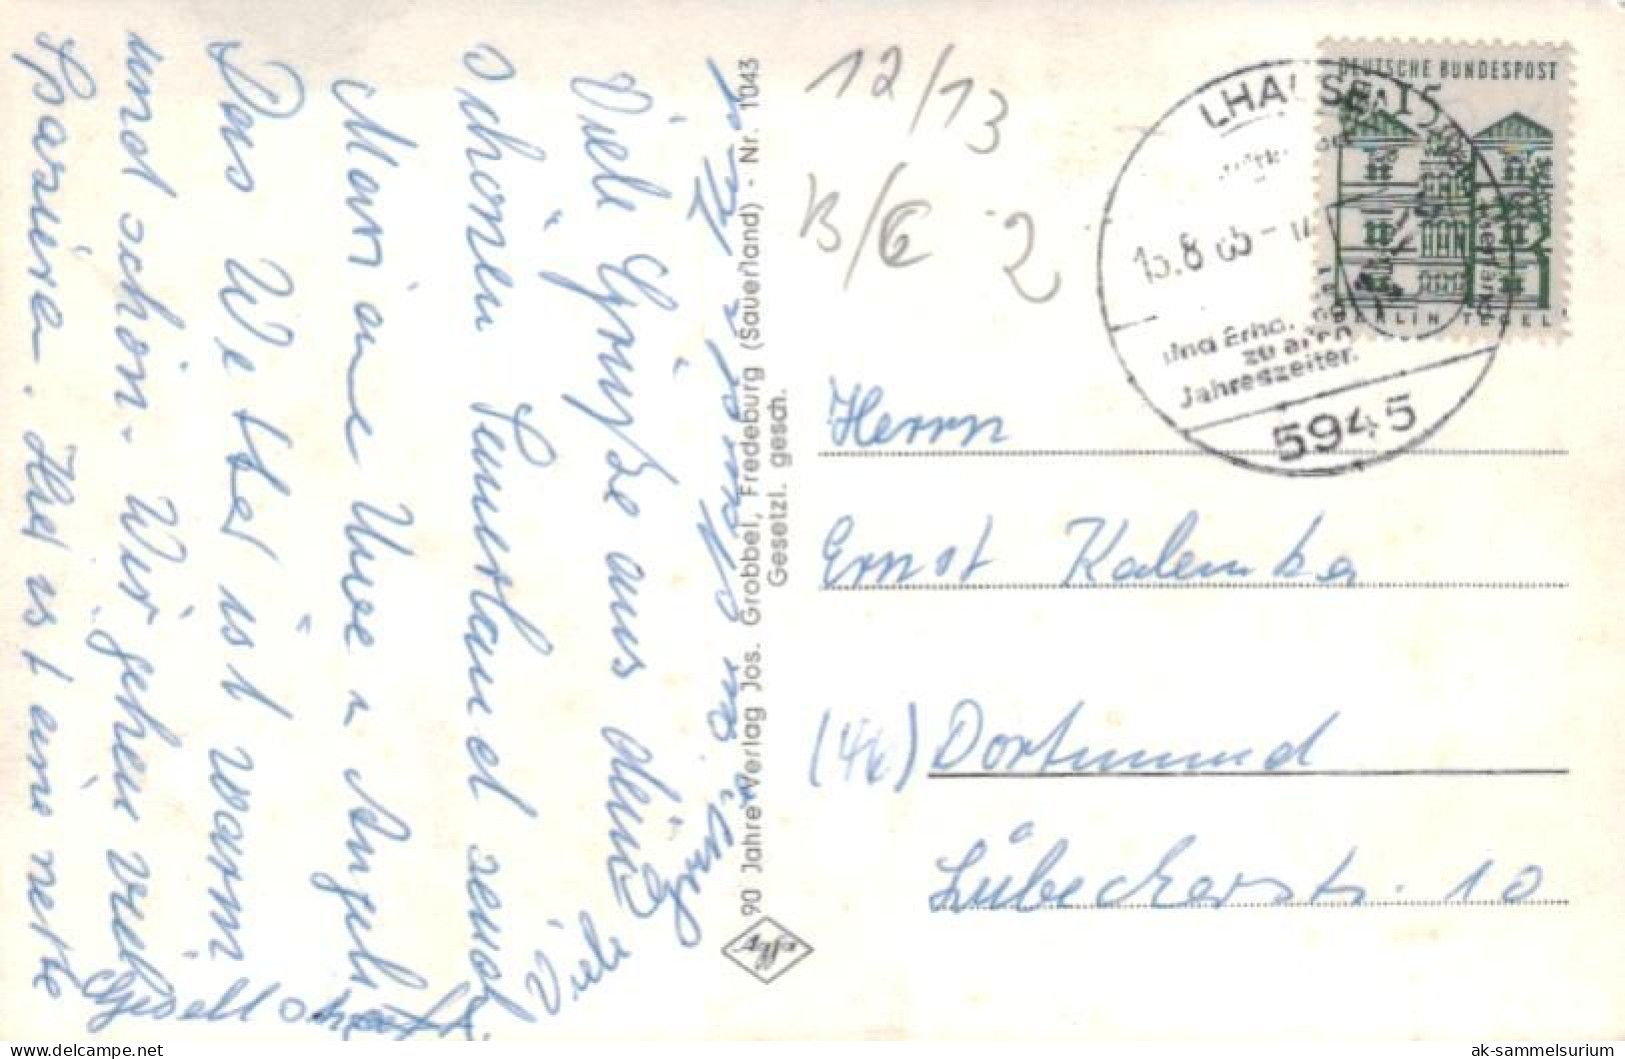 Viele Grüße aus dem
schönen Sauerland senden
Marianne Uwe u. Angelika
Das Wetter ist warm
und schön. Wir gehen viel
spazieren. Hier ist eine nette
Gesellschaft.
Viele Grüße
90 Jahre Verlag Jos. Grobbel, Fredeburg (Sauerland) · Nr. 1043
Gesetzl. gesch.
12/13
B/6 2
DEUTSCHE BUNDESPOST
15
BERLIN TEGEL
LHAUSE
und Erho
zu allen
Jahreszeiten.
5945
Herrn
Ernst Kalemba
(46) Dortmund
Lübeckerstr. 10
ak-sammelsurium
delcampe.net